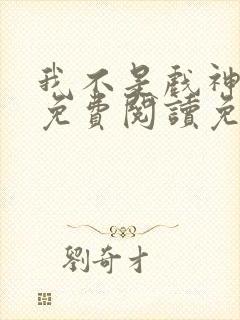 我不是戲神
免費閱讀免
劉奇才